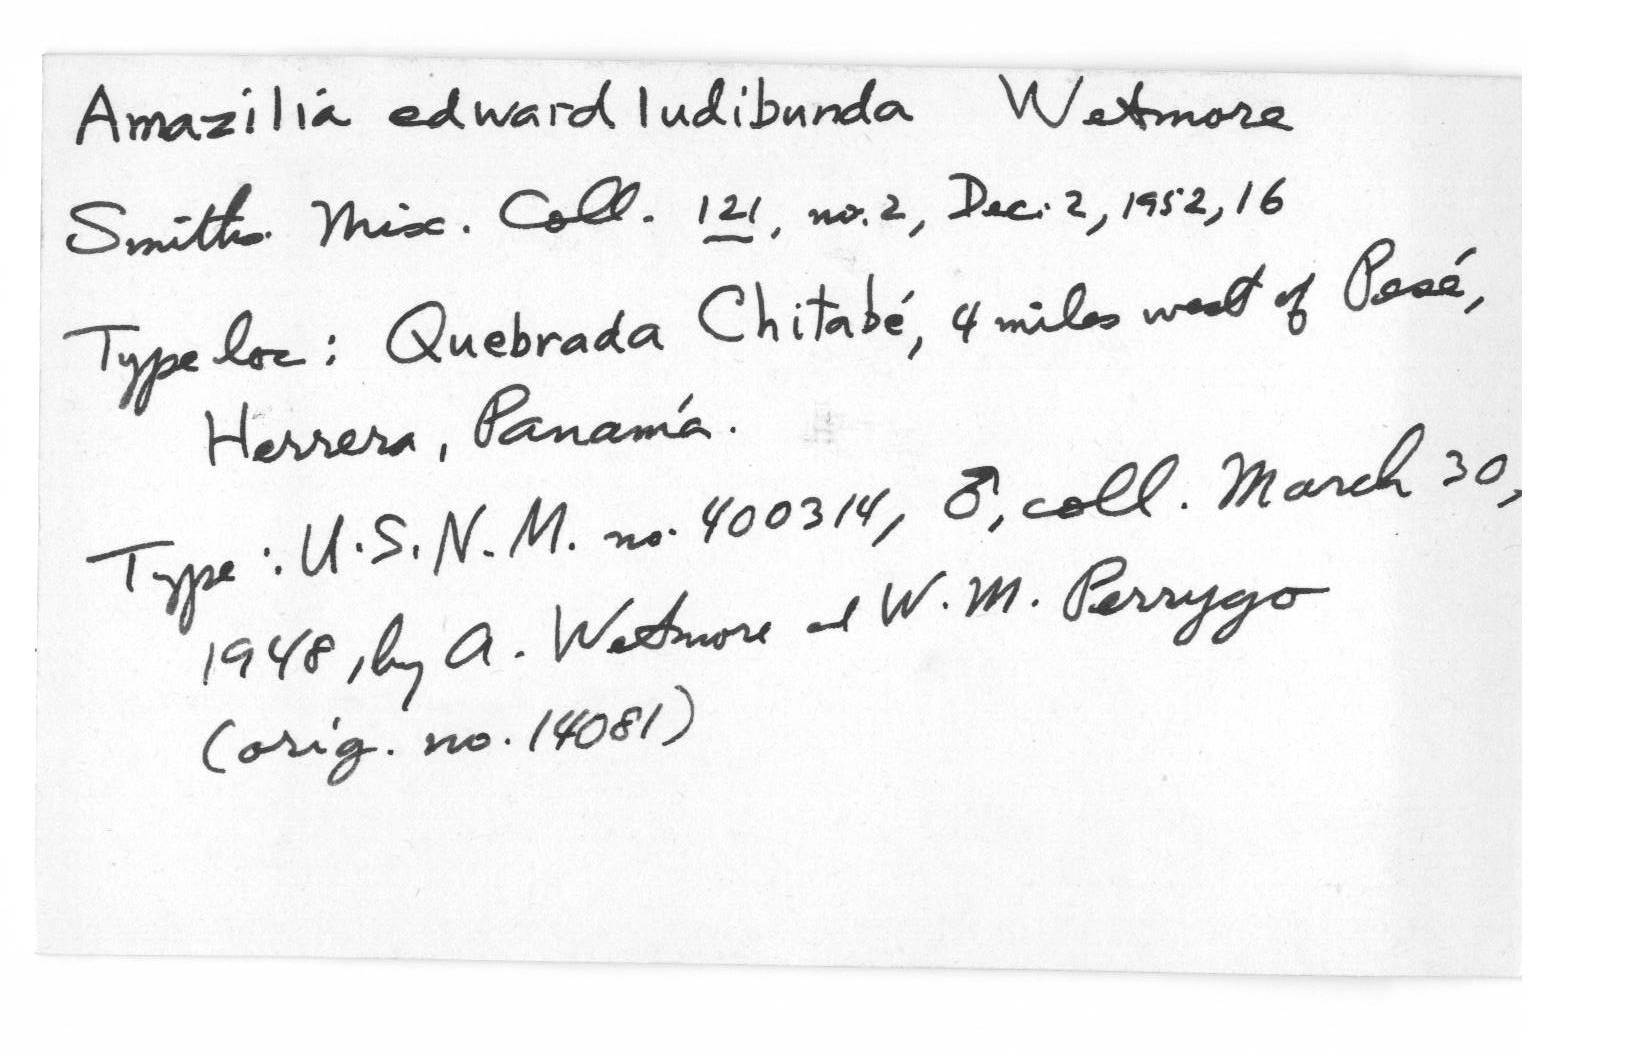 Amazilia edward ludibunda Wetmore
Smiths. Misc. Coll. 121, no. 2, Dec. 2, 1952, 16
Type loc: Quebrada Chitabé, 4 miles west of Pesé,
Herrera, Panamá.
Type: U.S.N.M. no. 400314, ♂, coll. March 30,
1948, by A. Wetmore and W. M. Perrygo
(orig. no. 14081)